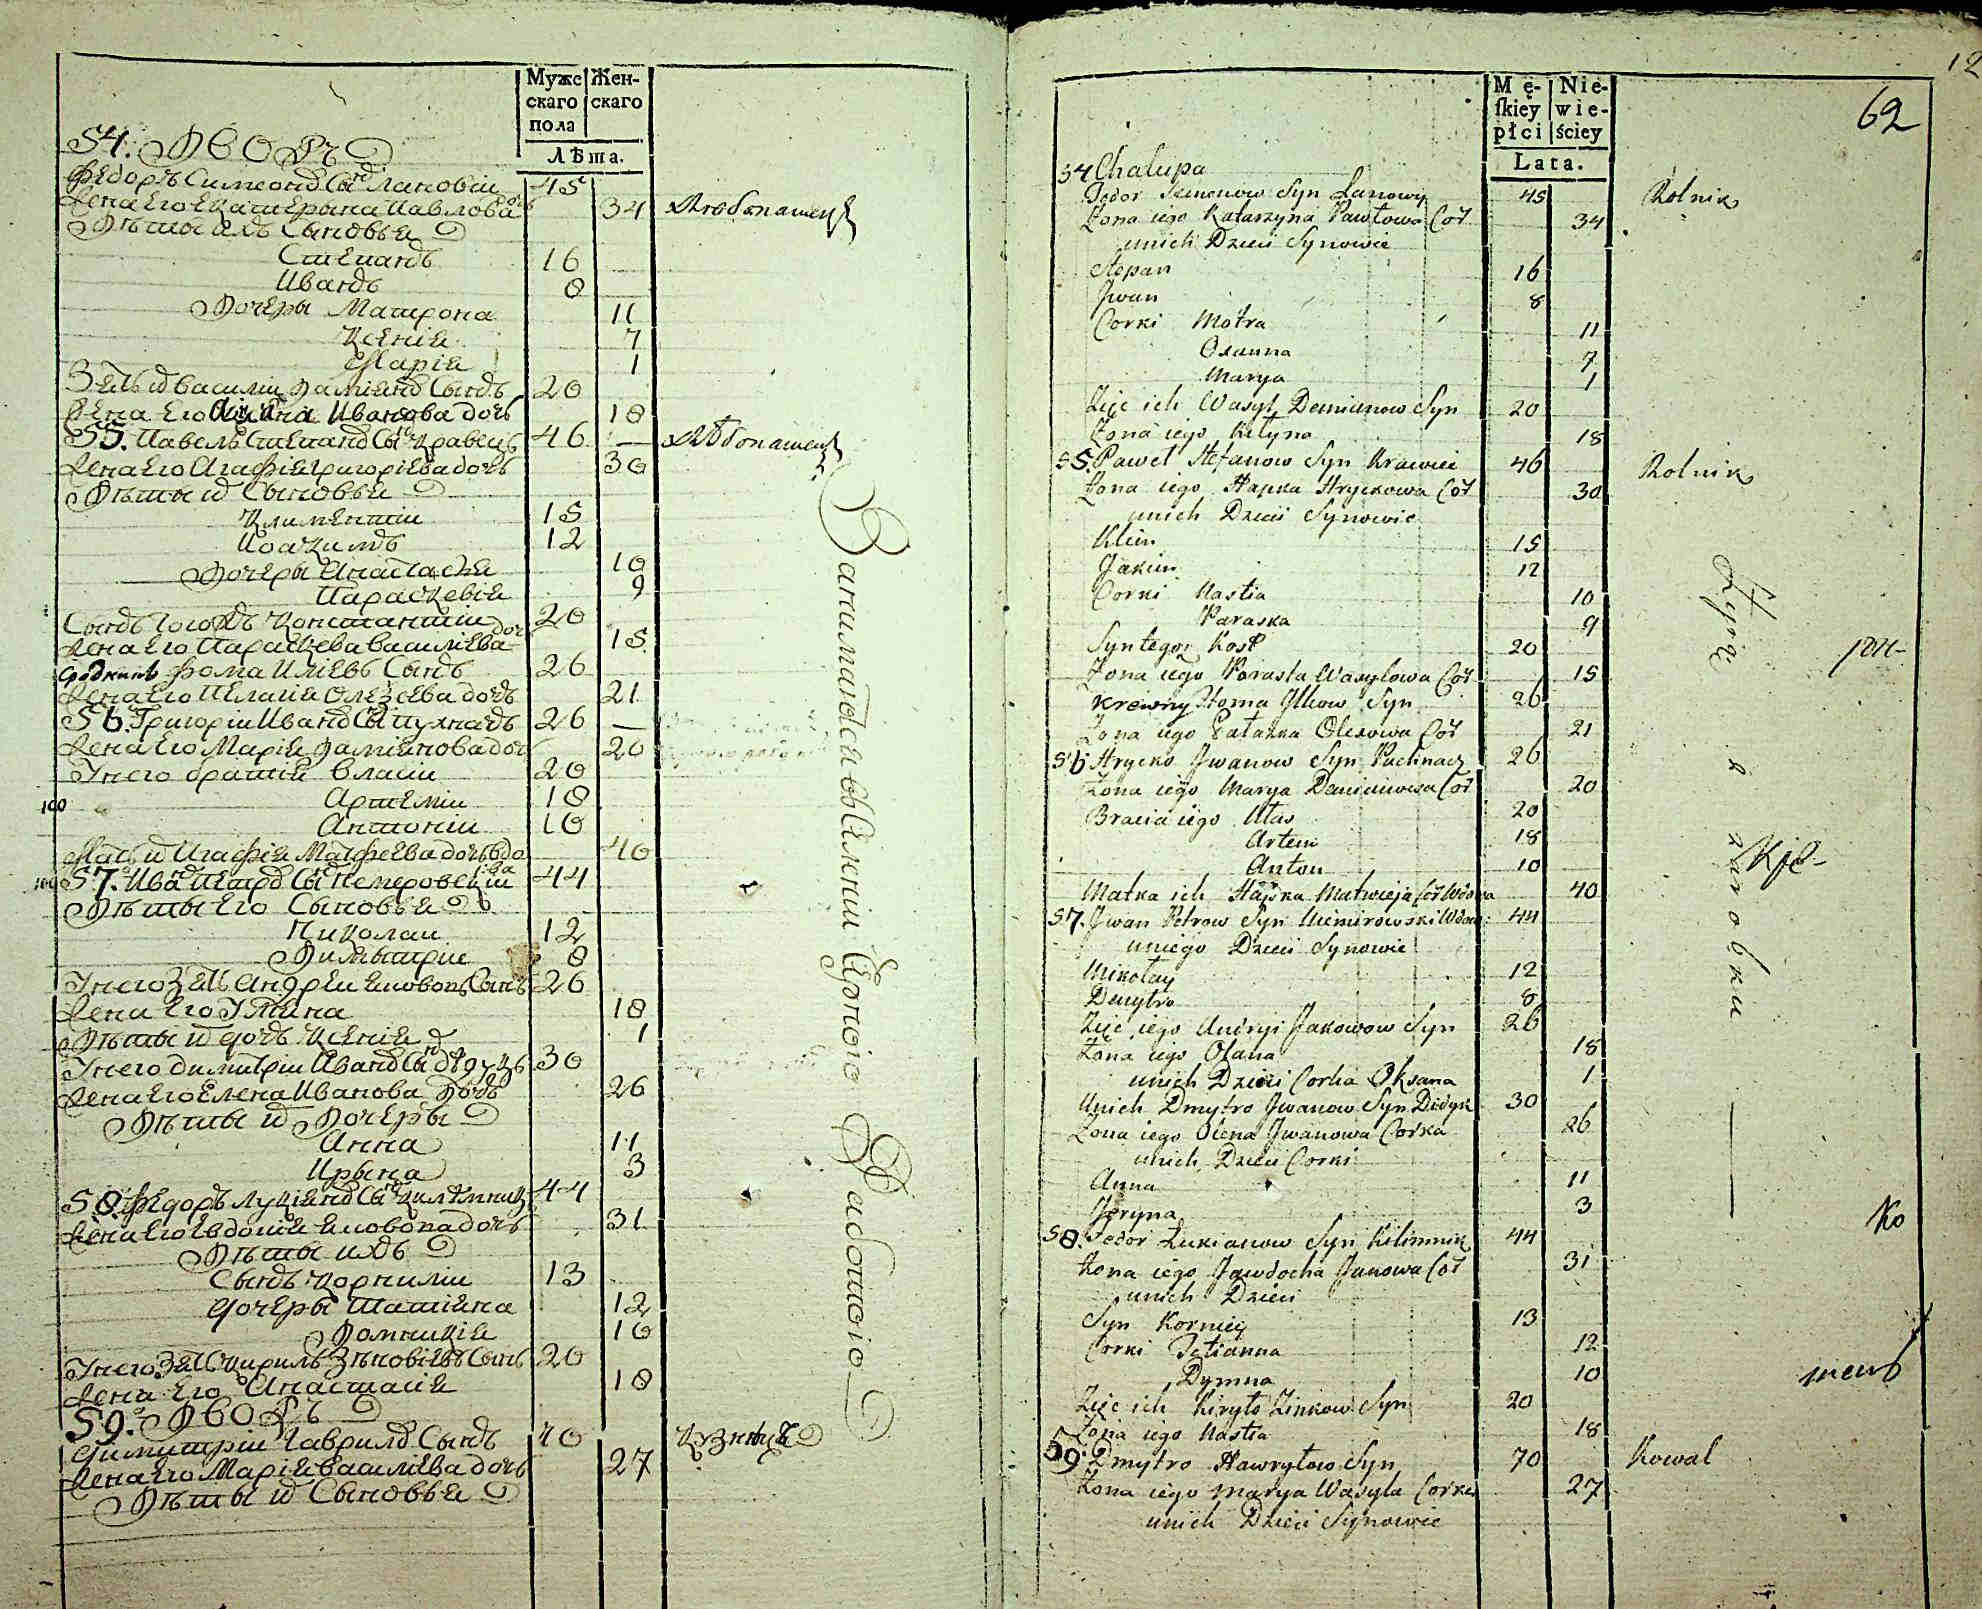 Мужс Жен-
скаго скаго
пола
Лѣта.
54. Дворъ
Федоръ Симеонов Сын Лановiи 45
Жена Его Екатерына Павлова дочь 34 Хлебопашец
Дѣты ихъ Сыновья
Степанъ 16
Иванъ 8
Дочеры Матрона 11
Ксения 7
Марiя 1
Зять их Василiи Дамiянов Сынъ 20
Жена Его Иванова дочь 18
55. Павелъ Степанов Сын Кравецъ 46 — Хлѣбопашец
Жена Его Агафiя Григорiева дочь 30
Дѣты их Сыновья
Климентiи 15
Иоакимъ 12
Дочеры Анастасия 10
Параскевiя 9
Сынъ Констан­тiи 20
Жена Его Параскева Василиева дочь 15
Сродникъ Фома Илиевъ Сынъ 26
Жена Его Пелагия Олексеева дочь 21
56. Григорiи Иванов Сын Пухначъ 26 —
Жена Его Марiя Дамiянова дочь 20
У него братия Власiи 20
100 Артемiи 18
Антонiи 10
Мать их Агафiя Матфеева дочь вдо 40
57. Иван Петров Сын Немеровскiи 44
Дѣты Его Сыновья
Николаи 12
Димитрие 8
У него Зять Андреи Яковов Сынъ 26
Жена Его Улiяна 18
Дѣты их дочь Ксения 1
У него Димитрiи Иванов Сын Дѣдукъ 30
Жена Его Елена Иванова дочь 26
Дѣты их Дочеры
Анна 11
Ирына 3
58. Федоръ Лукiянов Сын Килимник 44
Жена Его Евдокия Яковова дочь 31
Дѣты ихъ
Сынъ Корнилiи 13
дочеры Татiяна 12
Домникiя 10
У него Зять Кирилъ Зѣновiевъ Сынъ 20
Жена Его Анастасiя 18
59. Дворъ
Димитрiи Гаврилов Сынъ 70 Кузнецъ
Жена Его Марiя Василиева дочь 27
Дѣты их Сыновья
12
62
Mę- Nie-
skiey wie-
płci ściey
Lata.
54 Chalupa
Fedor Semenow Syn Łanowy 45 Rolnik
Żona iego Katarzyna Pawłowa Cór 34
unich Dzieci Synowie
Stepan 16
Jwan 8
Corki Motra 11
Oxanna 7
Marya 1
Zięć ich Wasyl Demianow Syn 20
Żona iego 18
55. Paweł Stefanow Syn Krawiec 46 Rolnik
Żona iego Hapka Hryckowa Cór 30
unich Dzieci Synowie
Klim 15
Jakim 12
Corki Nastia 10
Paraska 9
Syn tegoz Kost 20
Żona iego Paraska Wasylowa Cór 15
Krewny Homa Jlkow Syn 26
Żona iego Palazka Olexowa Cór 21
56 Hrycko Jwanow Syn Puchnacz 26
Żona iego Marya Demianowa Cór 20
Bracia iego Ułas 20
Artem 18
Anton 10
Matka ich Hapka Matwieja Cór Wdowa 40
57. Jwan Petrow Syn Niemirowski Wdow: 44
uniego Dzieci Synowie
Mikołay 12
Dmytro 8
Zięć iego Andryi Jakowow Syn 26
Żona iego Olana 18
unich Dzieci Corka Oksana 1
Unich Dmytro Jwanow Syn Didyk 30
Żona iego Olena Jwanowa Corka 26
unich Dzieci Corki
Anna 11
Jeryna 3
58. Fedor Łukianow Syn Kilimnik 44
Żona iego Jawdocha Jakowowa Cór 31
unich Dzieci
Syn Korniey 13
Corki Tatianna 12
Dymna 10
Zięć ich Kiryło Zinkow Syn 20
Żona iego Nastia 18
59. Dmytro Hawryłow Syn 70 Kowal
Żona iego Marya Wasyla Corka 27
unich Dzieci Synowie
Żyią z zarobku
Ko